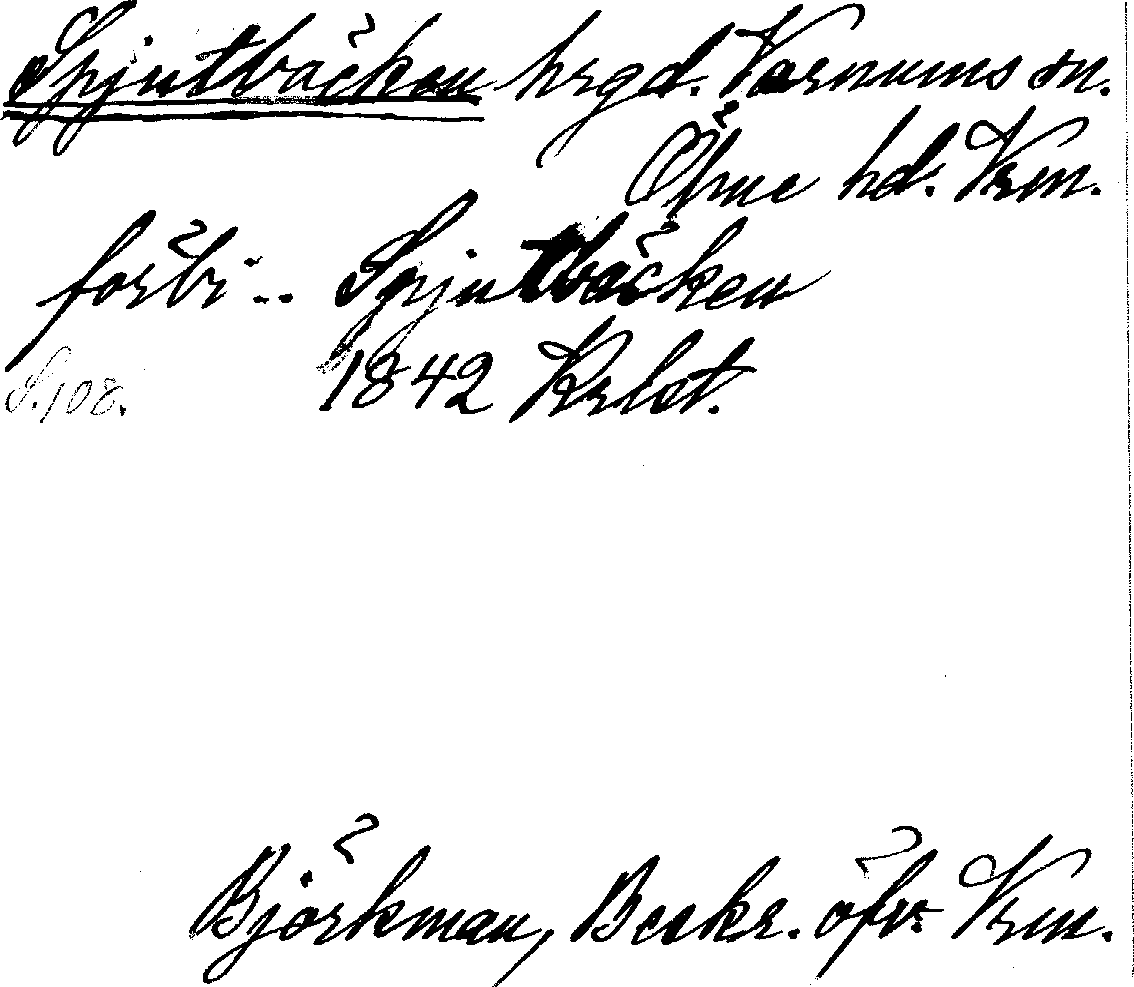 Spjutbäcken hrgd. Varnums sn.
Ölme hd. Vrm.
förbi .. Spjutbäcken
S. 108. 1842 Krlst.
Björkman, Beskr. öfv. Vrm.